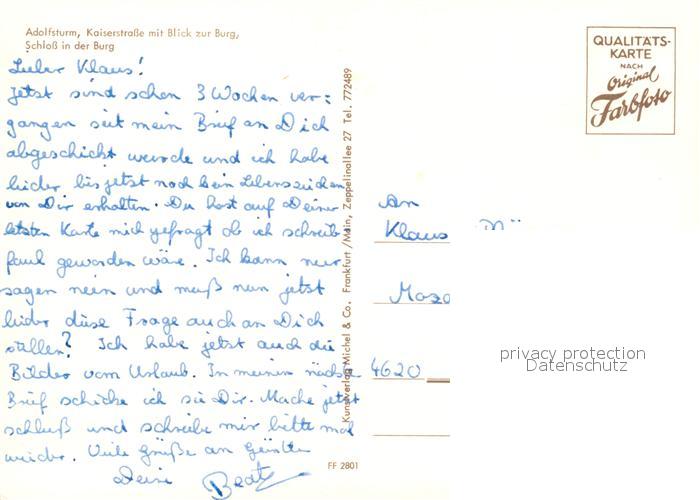 Adolfsturm, Kaiserstraße mit Blick zur Burg,
Schloß in der Burg
Lieber Klaus!
Jetzt sind schon 3 Wochen ver=
gangen seit mein Brief an Dich
abgeschickt wurde und ich habe
leider bis jetzt noch kein Lebenszeichen
von Dir erhalten. Du hast auf Deiner
letzten Karte mich gefragt ob ich schreib
faul geworden wäre. Ich kann nur
sagen nein und muß nun jetzt
leider diese Frage auch an Dich
stellen? Ich habe jetzt auch die
Bilder vom Urlaub. In meinem nächsten
Brief schicke ich sie Dir. Mache jetzt
schluß und schreibe mir bitte mal
wieder. Viele Grüße an
Deine Beate
Kunstverlag Michel & Co. Frankfurt/Main, Zeppelinallee 27 Tel. 772489
FF 2801
QUALITÄTS-
KARTE
NACH
Original
Farbfoto
An
Klaus
4620
privacy protection
Datenschutz